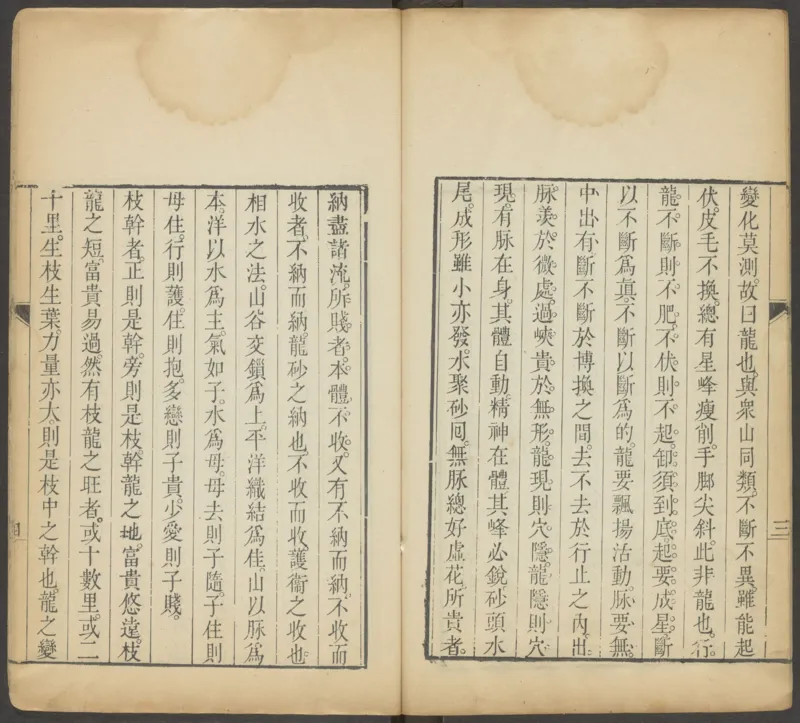 變化莫測。故曰龍也。與衆山同類。不斷不異。雖能起
伏。皮毛不換。總有星峰瘦削。手脚尖斜。此非龍也。行
龍不斷則不肥。不伏則不起。卸須到底。起要成星。斷
以不斷爲眞。不斷以斷爲的。龍要飄揚活動。脉要無
中出有。斷不斷於博換之間。去不去於行止之內。出
脉羡於微處。過峽貴於無形。龍現則穴隱。龍隱則穴
現。有脉在身。其體自動。精神在體。其峰必銳。砂頭水
尾。成形雖小亦發。水聚砂回。無脉總好虛花。所貴者。
三
納盡諸流。所賤者。本體不收。又有不納而納。不收而
收者。不納而納。龍砂之納也。不收而收。護衞之收也。
相水之法。山谷交鎖爲上。平洋織結爲佳。山以脉爲
本。洋以水爲主。氣如子。水爲母。母去則子隨。子住則
母住。行則護。住則抱。多戀則子貴。少愛則子賤。
枝幹者。正則是幹。旁則是枝。幹龍之地。富貴悠遠。枝
龍之短。富貴易過。然有枝龍之旺者。或十數里。或二
十里。生枝生葉。力量亦大。則是枝中之幹也。龍之變
四